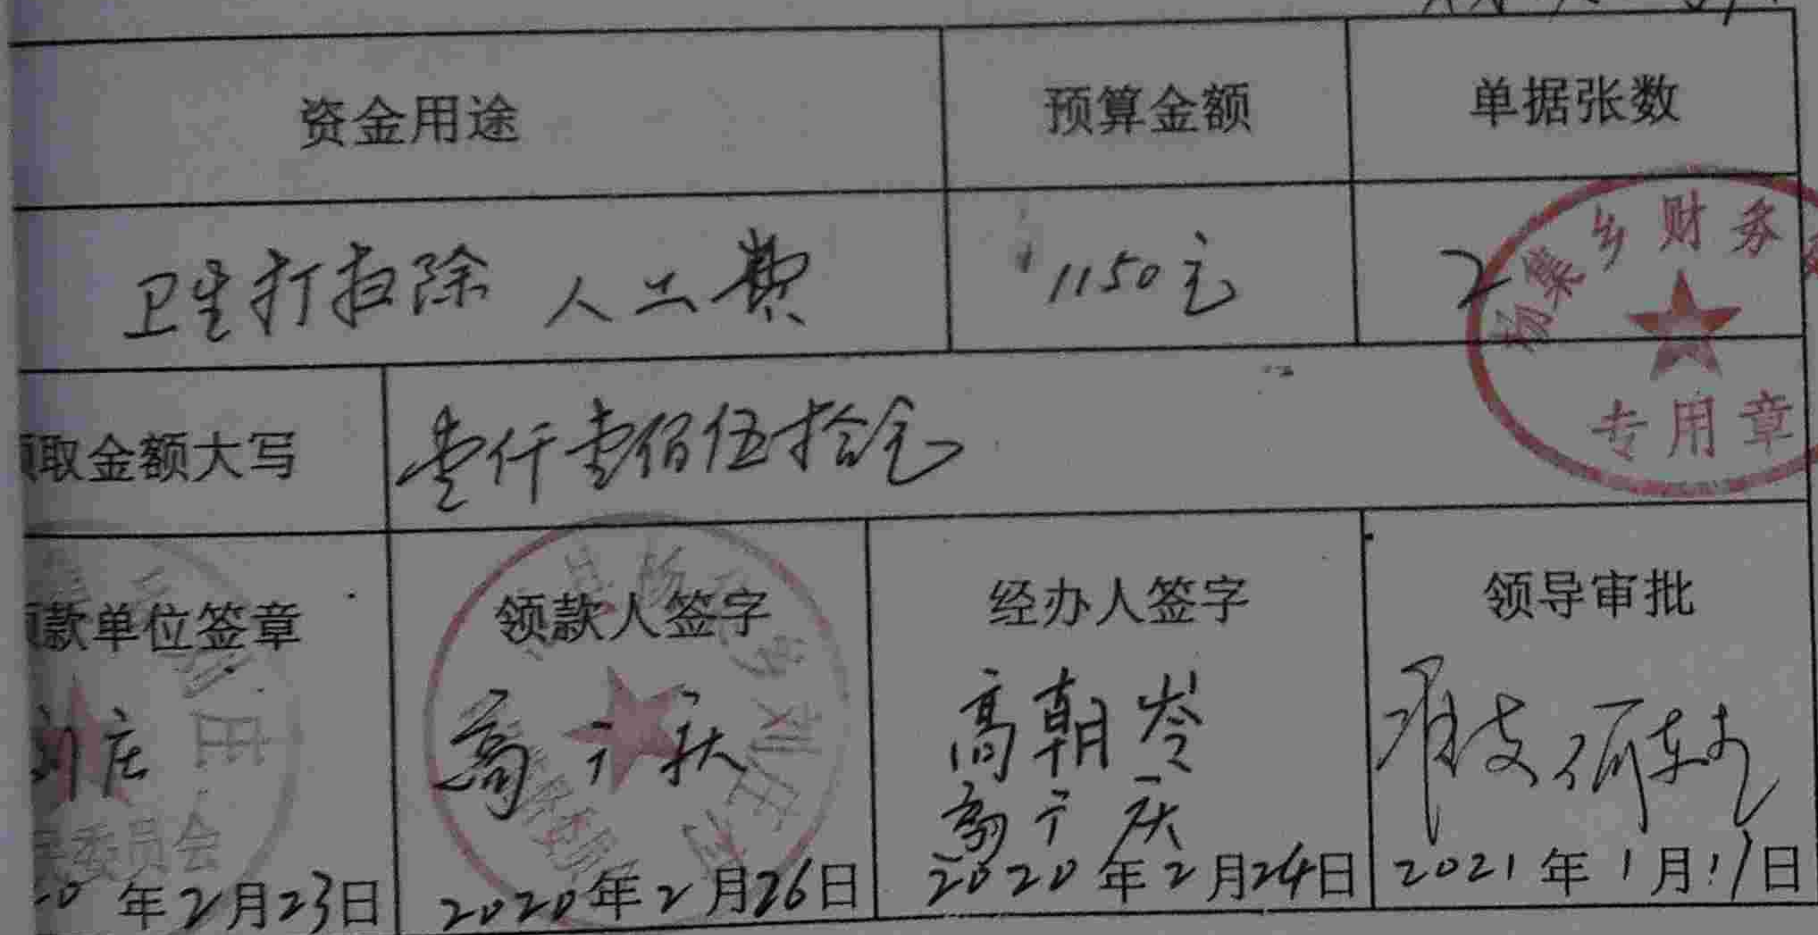 资金用途 预算金额 单据张数
卫生打扫除 人工费 1150元 2
乡财务
专用章
取金额大写 壹仟壹佰伍拾元
款单位签章 领款人签字 经办人签字 领导审批
刘庄 高广庆 高朝岑
高广庆
委员会
年2月23日 2020年2月26日 2020年2月24日 2021年1月11日